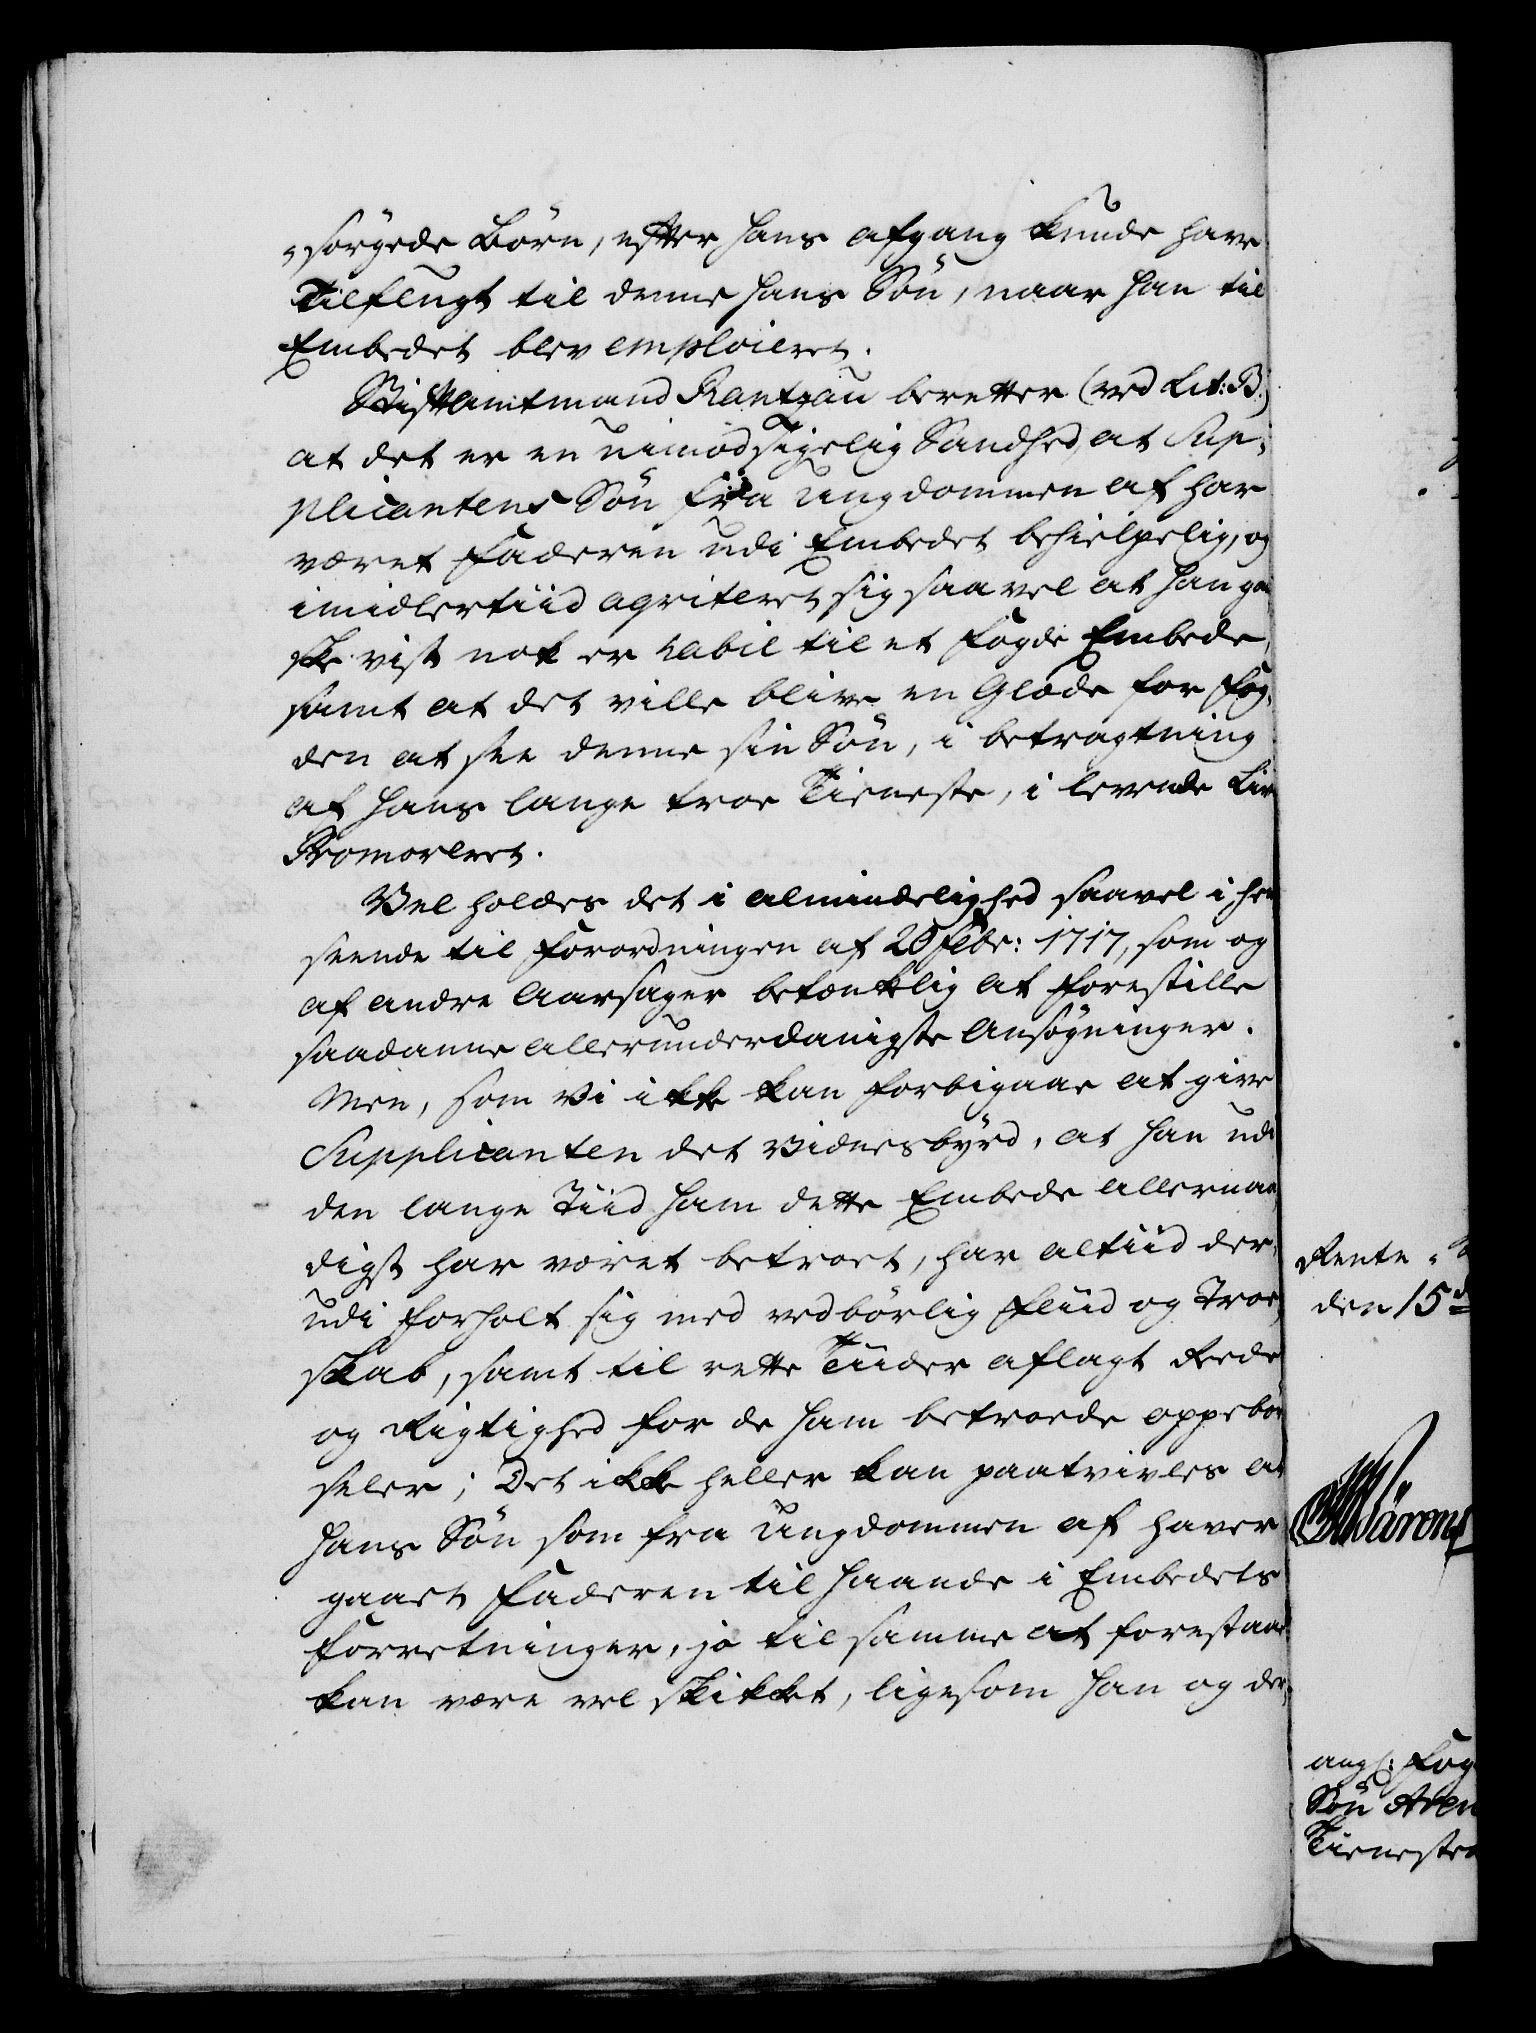 "sørgede Børn, efter hans afgang kunde have
Tilflugt til denne hans Søn, naar han til
Embedet blev emploieret.
Stiftamtmand Rantzau beretter (ved Lit: B.)
at det er en uimodsigelig Sandhed, at Sup-
plicantens Søn fra ungdommen af har
været Faderen udi Embedet behielpelig, og
imidlertiid aqviteret sig saa vel at han gan
ske vist nok er habil til et Fogde Embede,
samt at det ville blive en Glæde for Fog-
den at see denne sin Søn, i betragtning
af hans lange troe Tieneste, i levende Live
Promoveret.
Vel holdes det i almindelighed saavel i hen
seende til Forordningen af 20 Febr: 1717, som og
af andre Aarsager betænklig at forestille
saadanne allerunderdanigste Ansøgninger.
Men, som Vi ikke kan forbigaae at give
Supplicanten det Vidnesbyrd, at han udi
den lange Tiid ham dette Embede allernaa-
digst har været betroet, har altiid der-
udi forholt sig med vedbørlig Fliid og Troe-
skab, samt til rette Tiider aflagt Rede
og Rigtighed for de ham betroede oppebør
seler; Det ikke heller kan paatvivles at
hans Søn som fra ungdommen af haver
gaaet Faderen til haande i Embedets
Forretninger, jo til samme at forestaae
kan være vel skikket, ligesom han og der-
Rente-
den 15d
angl: Fog
Søn Aren
Tieneste